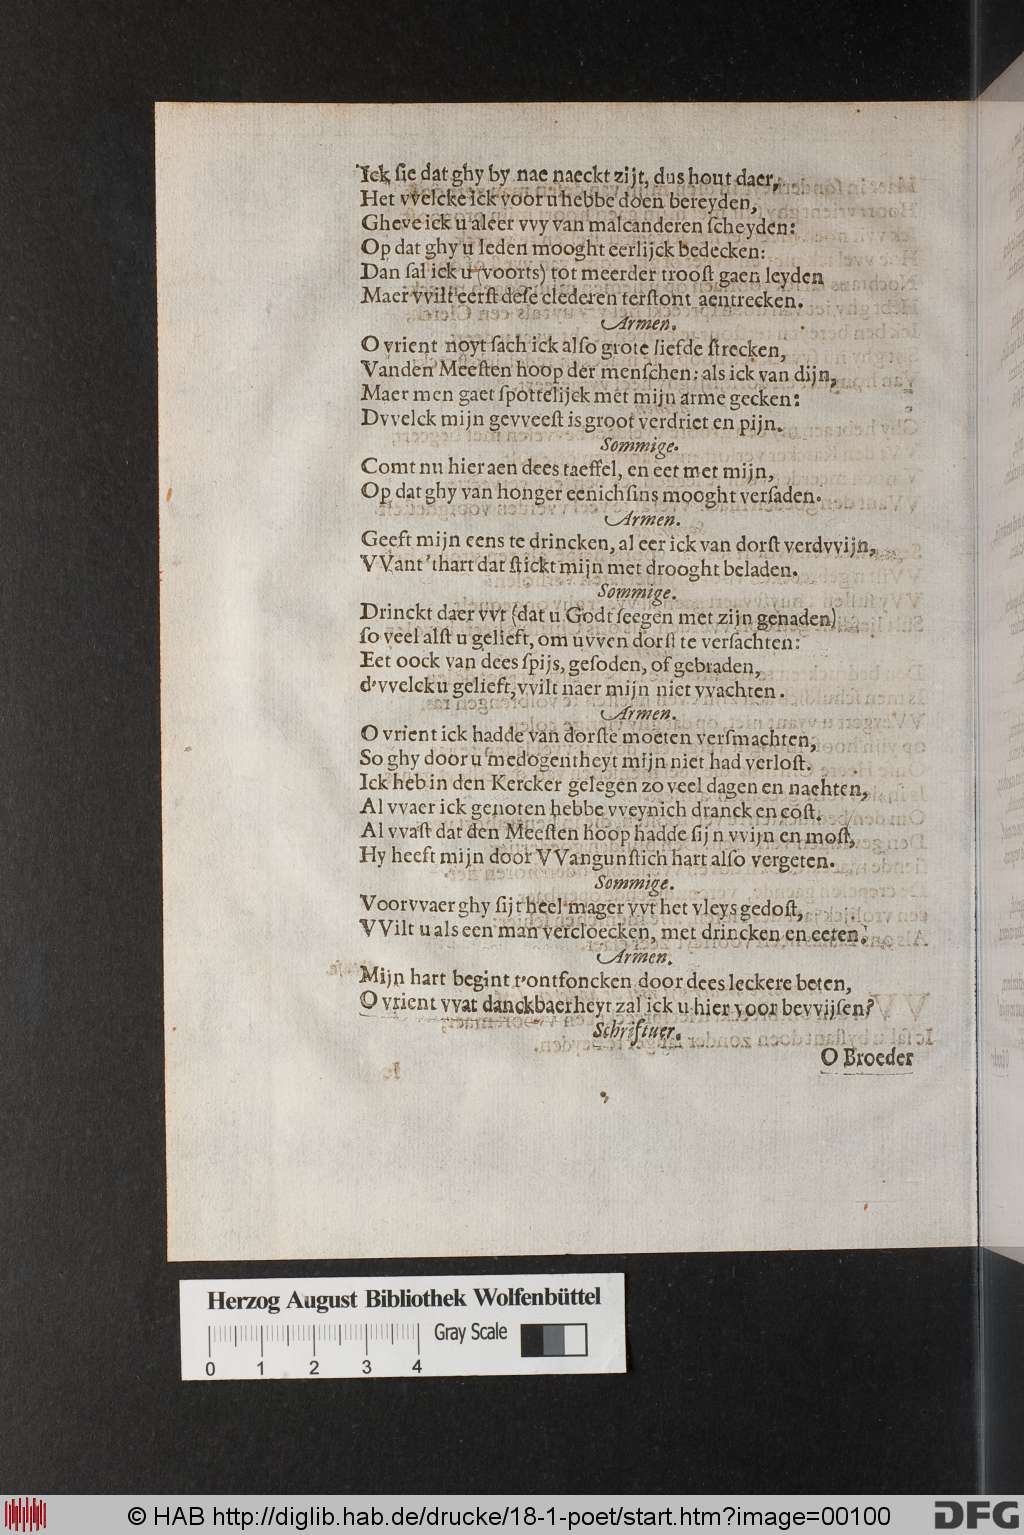 Ick sie dat ghy by nae naeckt zijt, dus hout daer,
Het vvelcke ick voor u hebbe doen bereyden,
Gheve ick u aleer vvy van malcanderen scheyden:
Op dat ghy u leden mooght eerlijck bedecken:
Dan sal ick u (voorts) tot meerder troost gaen leyden
Maer vvilt eerst dese clederen terstont aentrecken.
Armen.
O vrient noyt sach ick also grote liefde strecken,
Vanden Meesten hoop der menschen: als ick van dijn,
Maer men gaet spottelijck met mijn arme gecken:
Dvvelck mijn gevveest is groot verdriet en pijn.
Sommige.
Comt nu hier aen dees taeffel, en eet met mijn,
Op dat ghy van honger eenichsins mooght versaden.
Armen.
Geeft mijn eens te drincken, al eer ick van dorst verdvvijn,
VVant 'thart dat stickt mijn met drooght beladen.
Sommige.
Drinckt daer vvt (dat u Godt seegen met zijn genaden)
so veel alst u gelieft, om uvven dorst te versachten:
Eet oock van dees spijs, gesoden, of gebraden,
d'vvelck u gelieft, vvilt naer mijn niet vvachten.
Armen.
O vrient ick hadde van dorste moeten versmachten,
So ghy door u medogentheyt mijn niet had verlost.
Ick heb in den Kercker gelegen zo veel dagen en nachten,
Al vvaer ick genoten hebbe vveynich dranck en cost.
Al vvast dat den Meesten hoop hadde sijn vvijn en most,
Hy heeft mijn door VVangunstich hart also vergeten.
Sommige.
Voorvvaer ghy sijt heel mager vvt het vleys gedost,
VVilt u als een man vercloecken, met drincken en eeten.
Armen.
Mijn hart begint t'ontfoncken door dees leckere beten,
O vrient vvat danckbaerheyt zal ick u hier voor bevvijsen?
Schriftuer.
O Broeder
Herzog August Bibliothek Wolfenbüttel
Gray Scale
0 1 2 3 4
© HAB http://diglib.hab.de/drucke/18-1-poet/start.htm?image=00100
DFG